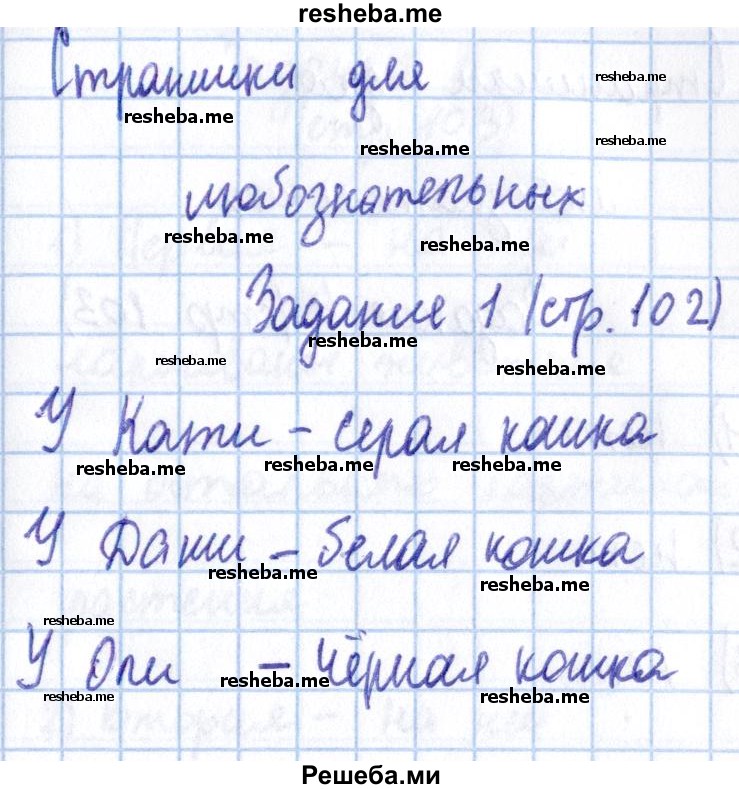 resheba.me
Странички для
resheba.me
resheba.me
resheba.me
resheba.me
любознательных
resheba.me
resheba.me
Задание 1 (стр. 102)
resheba.me
resheba.me
resheba.me
У Кати – серая кошка
resheba.me
resheba.me
resheba.me
У Даши – белая кошка
resheba.me
resheba.me
resheba.me
У Оли – чёрная кошка
resheba.me
resheba.me
resheba.me
Решеба.ми